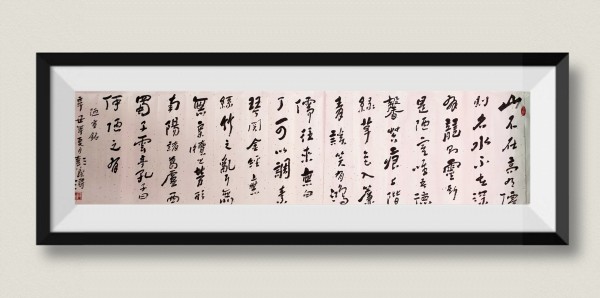 山不在高有僊
則名水不在深
有龍則靈斯
是陋室唯吾德
馨苔痕上階
綠草色入簾
青談笑有鴻
儒往來無白
丁可以調素
琴閱金經無
絲竹之亂耳
無案牘之勞形
南陽諸葛廬西
蜀子雲亭孔子曰
何陋之有
陋室銘